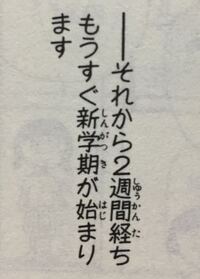 ――それから2週間経ち
もうすぐ新学期が始まり
ます